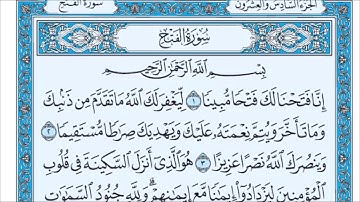 الجزء السادس والعشرون
سورة الفتح
سُورَةُ الفَتْحِ
بِسْمِ اللَّهِ الرَّحْمَٰنِ الرَّحِيمِ
إِنَّا فَتَحْنَا لَكَ فَتْحًا مُّبِينًا ١ لِّيَغْفِرَ لَكَ اللَّهُ مَا تَقَدَّمَ مِن ذَنۢبِكَ
وَمَا تَأَخَّرَ وَيُتِمَّ نِعْمَتَهُۥ عَلَيْكَ وَيَهْدِيَكَ صِرَٰطًا مُّسْتَقِيمًا ٢
وَيَنصُرَكَ اللَّهُ نَصْرًا عَزِيزًا ٣ هُوَ الَّذِىٓ أَنزَلَ السَّكِينَةَ فِى قُلُوبِ
الْمُؤْمِنِينَ لِيَزْدَادُوٓا۟ إِيمَٰنًا مَّعَ إِيمَٰنِهِمْ ۗ وَلِلَّهِ جُنُودُ السَّمَٰوَٰتِ